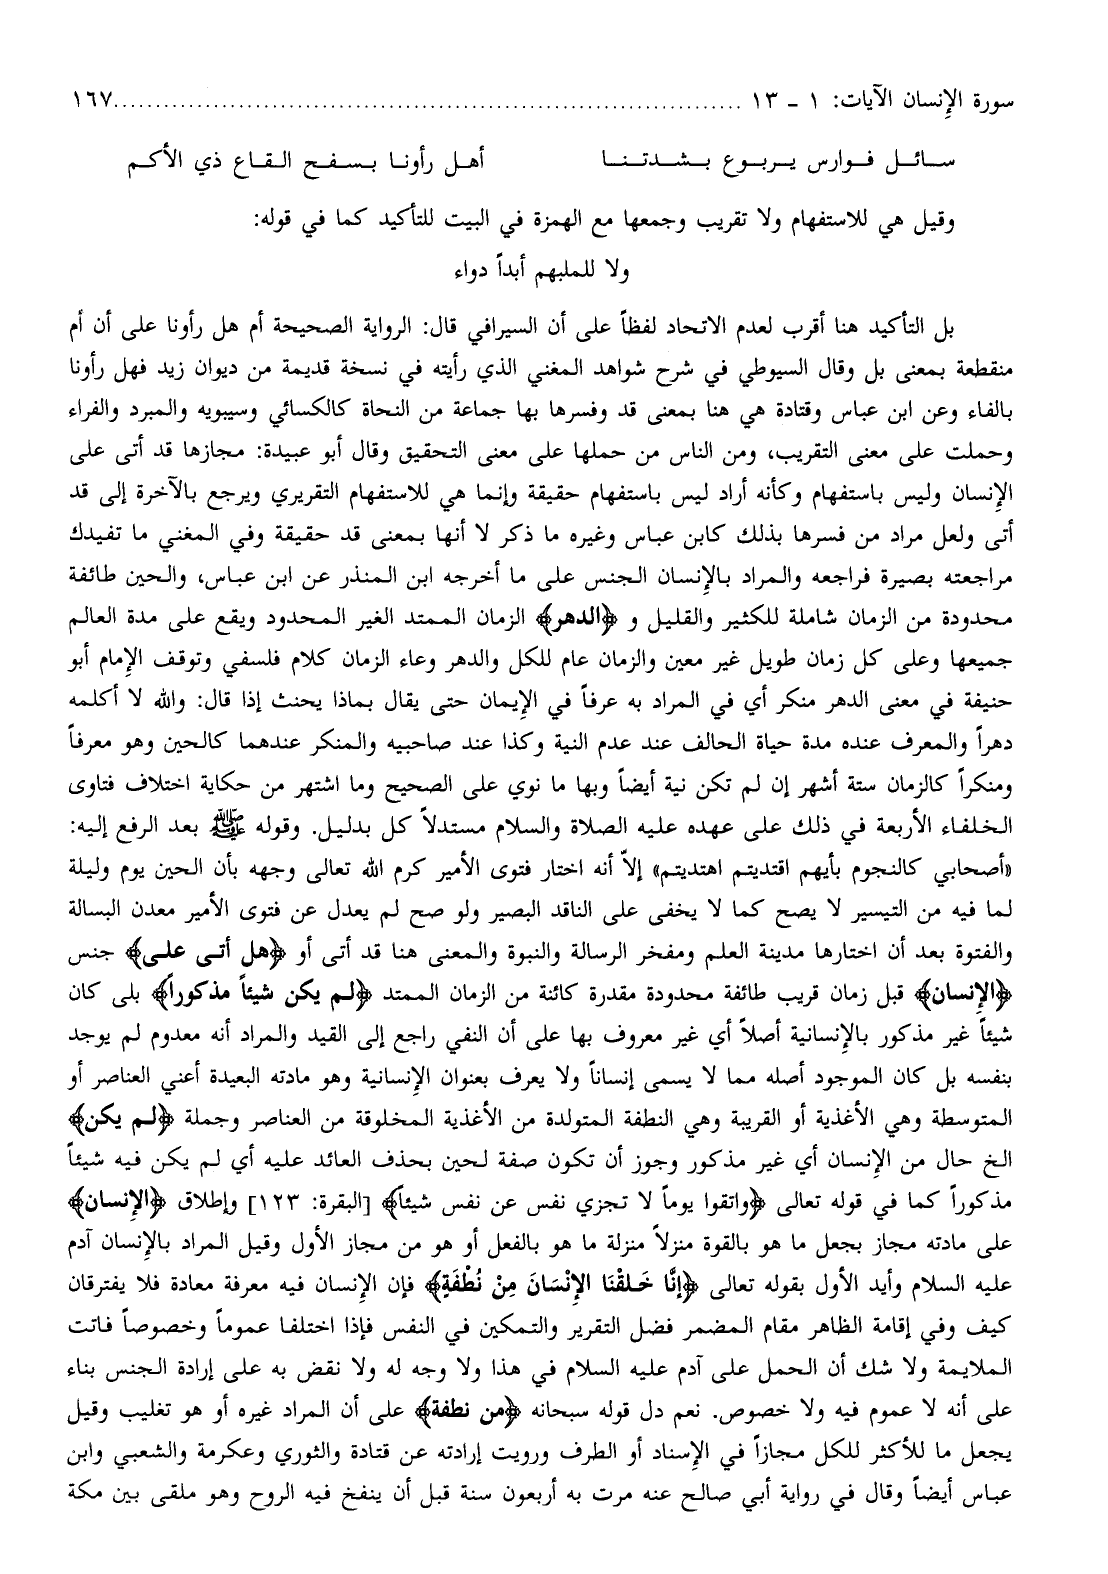 سورة الإنسان الآيات: ١ ـ ١٣ ........................................................................... ١٦٧
سـائـل فـوارس يـربـوع بـشـدتـنـا أهـل رأونـا بـسـفـح الـقـاع ذي الأكـم
وقيل هي للاستفهام ولا تقريب وجمعها مع الهمزة في البيت للتأكيد كما في قوله:
ولا للملبهم أبداً دواء
بل التأكيد هنا أقرب لعدم الاتحاد لفظاً على أن السيرافي قال: الرواية الصحيحة أم هل رأونا على أن أم
منقطعة بمعنى بل وقال السيوطي في شرح شواهد المغني الذي رأيته في نسخة قديمة من ديوان زيد فهل رأونا
بالفاء وعن ابن عباس وقتادة هي هنا بمعنى قد وفسرها بها جماعة من النحاة كالكسائي وسيبويه والمبرد والفراء
وحملت على معنى التقريب، ومن الناس من حملها على معنى التحقيق وقال أبو عبيدة: مجازها قد أتى على
الإنسان وليس باستفهام وكأنه أراد ليس باستفهام حقيقة وإنما هي للاستفهام التقريري ويرجع بالآخرة إلى قد
أتى ولعل مراد من فسرها بذلك كابن عباس وغيره ما ذكر لا أنها بمعنى قد حقيقة وفي المغني ما تفيدك
مراجعته بصيرة فراجعه والمراد بالإنسان الجنس على ما أخرجه ابن المنذر عن ابن عباس، والحين طائفة
محدودة من الزمان شاملة للكثير والقليل و ﴿الدهر﴾ الزمان الممتد الغير المحدود ويقع على مدة العالم
جميعها وعلى كل زمان طويل غير معين والزمان عام للكل والدهر وعاء الزمان كلام فلسفي وتوقف الإمام أبو
حنيفة في معنى الدهر منكر أي في المراد به عرفاً في الإيمان حتى يقال بماذا يحنث إذا قال: والله لا أكلمه
دهراً والمعرف عنده مدة حياة الحالف عند عدم النية وكذا عند صاحبيه والمنكر عندهما كالحين وهو معرفاً
ومنكراً كالزمان ستة أشهر إن لم تكن نية أيضاً وبها ما نوي على الصحيح وما اشتهر من حكاية اختلاف فتاوى
الخلفاء الأربعة في ذلك على عهده عليه الصلاة والسلام مستدلاً كل بدليل. وقوله ﷺ بعد الرفع إليه:
«أصحابي كالنجوم بأيهم اقتديتم اهتديتم» إلاّ أنه اختار فتوى الأمير كرم الله تعالى وجهه بأن الحين يوم وليلة
لما فيه من التيسير لا يصح كما لا يخفى على الناقد البصير ولو صح لم يعدل عن فتوى الأمير معدن البسالة
والفتوة بعد أن اختارها مدينة العلم ومفخر الرسالة والنبوة والمعنى هنا قد أتى أو ﴿هل أتى على﴾ جنس
﴿الإنسان﴾ قبل زمان قريب طائفة محدودة مقدرة كائنة من الزمان الممتد ﴿لم يكن شيئاً مذكوراً﴾ بلى كان
شيئاً غير مذكور بالإنسانية أصلاً أي غير معروف بها على أن النفي راجع إلى القيد والمراد أنه معدوم لم يوجد
بنفسه بل كان الموجود أصله مما لا يسمى إنساناً ولا يعرف بعنوان الإنسانية وهو مادته البعيدة أعني العناصر أو
المتوسطة وهي الأغذية أو القريبة وهي النطفة المتولدة من الأغذية المخلوقة من العناصر وجملة ﴿لم يكن﴾
الخ حال من الإنسان أي غير مذكور وجوز أن تكون صفة لحين بحذف العائد عليه أي لم يكن فيه شيئاً
مذكوراً كما في قوله تعالى ﴿واتقوا يوماً لا تجزي نفس عن نفس شيئاً﴾ [البقرة: ١٢٣] وإطلاق ﴿الإنسان﴾
على مادته مجاز بجعل ما هو بالقوة منزلاً منزلة ما هو بالفعل أو هو من مجاز الأول وقيل المراد بالإنسان آدم
عليه السلام وأيد الأول بقوله تعالى ﴿إنَّا خَلقْنَا الإنْسَانَ مِنْ نُطْفَةٍ﴾ فإن الإنسان فيه معرفة معادة فلا يفترقان
كيف وفي إقامة الظاهر مقام المضمر فضل التقرير والتمكين في النفس فإذا اختلفا عموماً وخصوصاً فاتت
الملايمة ولا شك أن الحمل على آدم عليه السلام في هذا ولا وجه له ولا نقض به على إرادة الجنس بناء
على أنه لا عموم فيه ولا خصوص. نعم دل قوله سبحانه ﴿من نطفة﴾ على أن المراد غيره أو هو تغليب وقيل
يجعل ما للأكثر للكل مجازاً في الإسناد أو الطرف ورويت إرادته عن قتادة والثوري وعكرمة والشعبي وابن
عباس أيضاً وقال في رواية أبي صالح عنه مرت به أربعون سنة قبل أن ينفخ فيه الروح وهو ملقى بين مكة